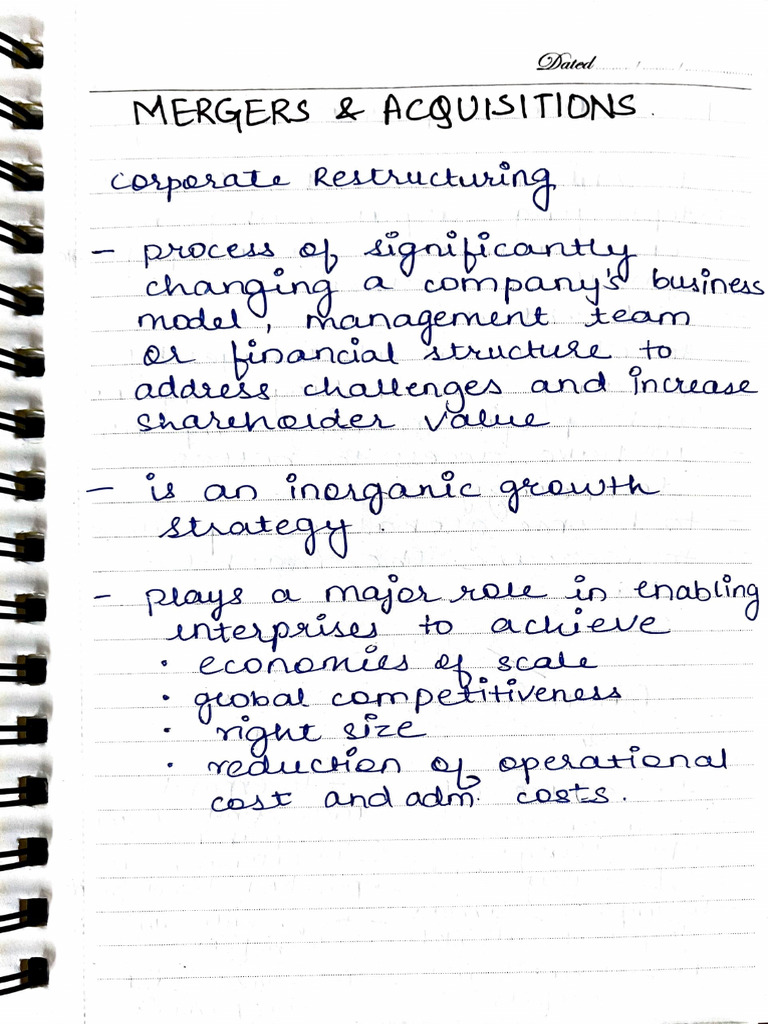 Dated
MERGERS & ACQUISITIONS.
Corporate Restructuring
- process of significantly
changing a company's business
model, management team
or financial structure to
address challenges and increase
shareholder value
- is an inorganic growth
strategy.
- plays a major role in enabling
enterprises to achieve
• economies of scale
• global competitiveness
• right size
• reduction of operational
cost and adm. costs.